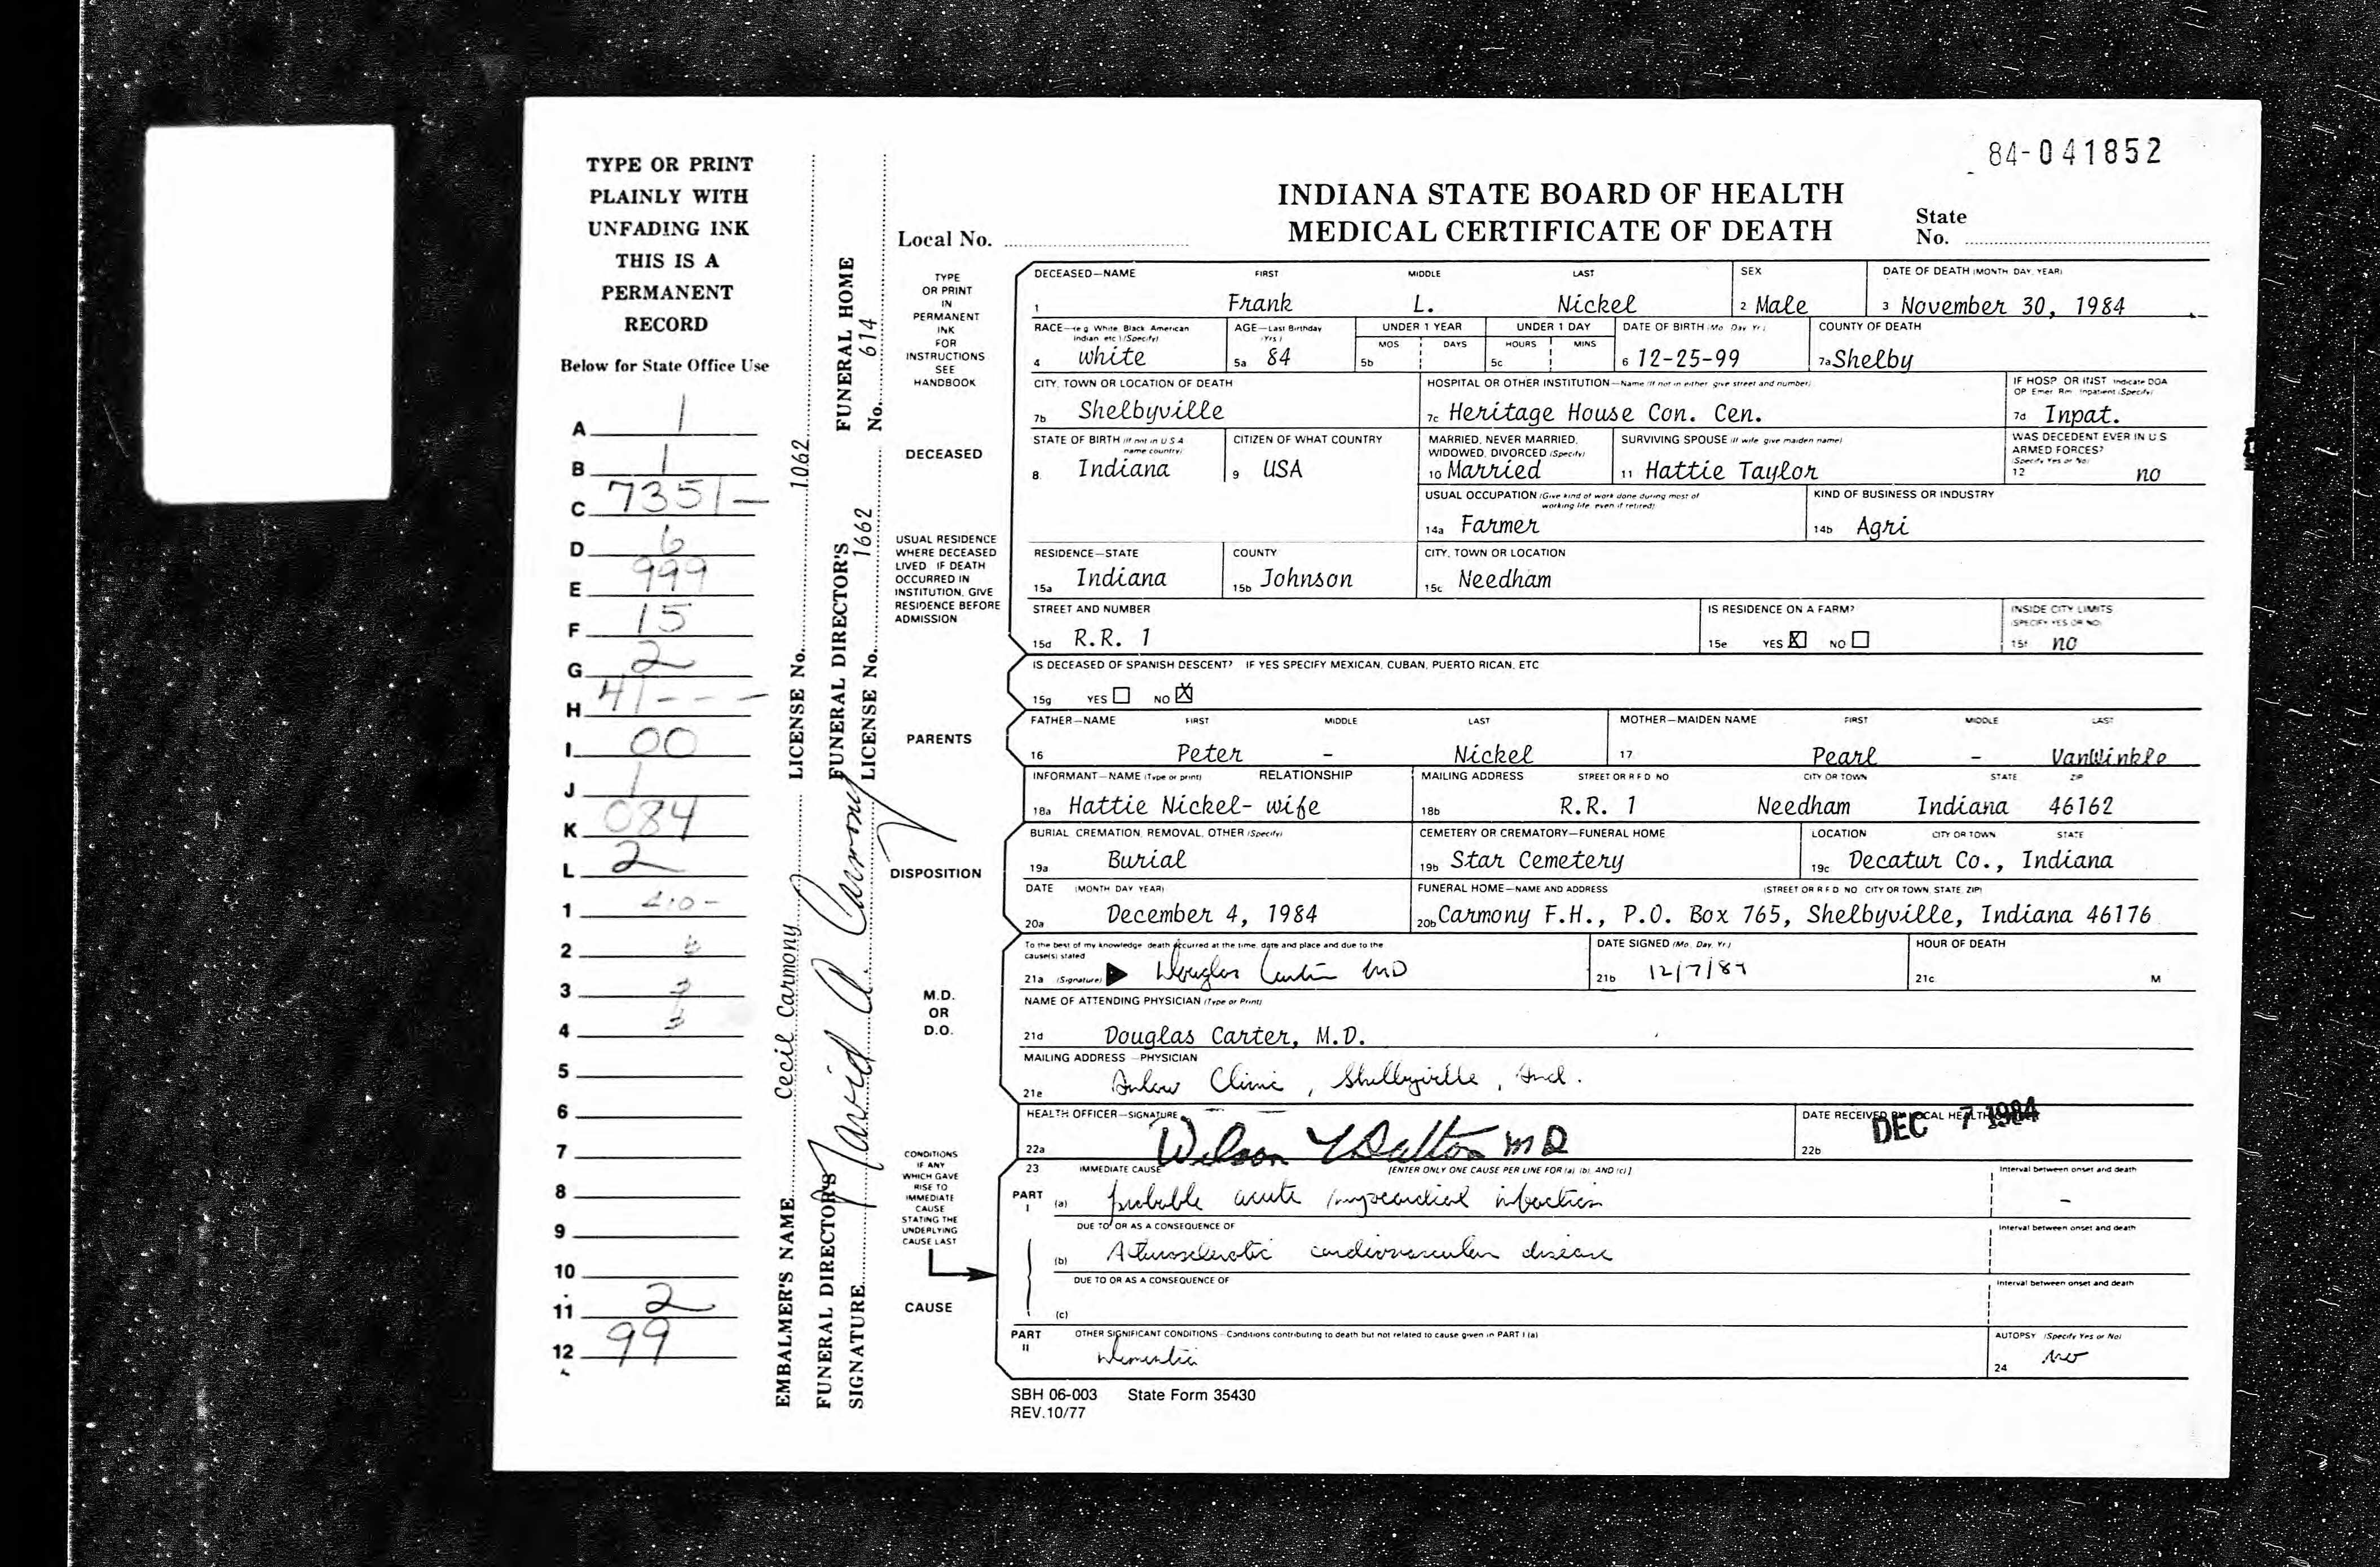 84-041852
INDIANA STATE BOARD OF HEALTH
MEDICAL CERTIFICATE OF DEATH
Local No.
State
No.
TYPE OR PRINT
PLAINLY WITH
UNFADING INK
THIS IS A
PERMANENT
RECORD
Below for State Office Use
A 1
B 1
C 7351-
D 6
E 999
F 15
G 2
H 41---
I 00
J 1
K 084
L 2
1 410-
2
3
4
5
6
7
8
9
10
11 2
12 99
EMBALMER'S NAME Cecil Carmony LICENSE No. 1062
FUNERAL DIRECTOR'S SIGNATURE David A. Carmony
FUNERAL DIRECTOR'S LICENSE No. 1662
FUNERAL HOME No. 614
TYPE
OR PRINT
IN
PERMANENT
INK
FOR
INSTRUCTIONS
SEE
HANDBOOK
DECEASED
USUAL RESIDENCE
WHERE DECEASED
LIVED IF DEATH
OCCURRED IN
INSTITUTION, GIVE
RESIDENCE BEFORE
ADMISSION
PARENTS
DISPOSITION
M.D.
OR
D.O.
CONDITIONS
IF ANY
WHICH GAVE
RISE TO
IMMEDIATE
CAUSE
STATING THE
UNDERLYING
CAUSE LAST
CAUSE
DECEASED—NAME FIRST MIDDLE LAST SEX DATE OF DEATH (MONTH, DAY, YEAR)
1 Frank L. Nickel 2 Male 3 November 30, 1984
RACE—(e.g. White, Black, American Indian, etc.) (Specify) AGE—Last Birthday (Yrs.) UNDER 1 YEAR UNDER 1 DAY DATE OF BIRTH (Mo. Day, Yr.) COUNTY OF DEATH
MOS DAYS HOURS MINS
4 white 5a 84 5b 5c 6 12-25-99 7a Shelby
CITY, TOWN OR LOCATION OF DEATH HOSPITAL OR OTHER INSTITUTION—Name (If not in either, give street and number) IF HOSP OR INST Indicate DOA OP Emer Rm Inpatient (Specify)
7b Shelbyville 7c Heritage House Con. Cen. 7d Inpat.
STATE OF BIRTH (If not in U S A name country) CITIZEN OF WHAT COUNTRY MARRIED, NEVER MARRIED, WIDOWED, DIVORCED (Specify) SURVIVING SPOUSE (If wife, give maiden name) WAS DECEDENT EVER IN U S ARMED FORCES? (Specify Yes or No)
8 Indiana 9 USA 10 Married 11 Hattie Taylor 12 no
USUAL OCCUPATION (Give kind of work done during most of working life, even if retired) KIND OF BUSINESS OR INDUSTRY
14a Farmer 14b Agri
RESIDENCE—STATE COUNTY CITY, TOWN OR LOCATION
15a Indiana 15b Johnson 15c Needham
STREET AND NUMBER IS RESIDENCE ON A FARM? INSIDE CITY LIMITS (SPECIFY YES OR NO)
15d R.R. 1 15e YES X NO 15f no
IS DECEASED OF SPANISH DESCENT? IF YES SPECIFY MEXICAN, CUBAN, PUERTO RICAN, ETC
15g YES NO X
FATHER—NAME FIRST MIDDLE LAST MOTHER—MAIDEN NAME FIRST MIDDLE LAST
16 Peter - Nickel 17 Pearl - VanWinkle
INFORMANT—NAME (Type or print) RELATIONSHIP MAILING ADDRESS STREET OR R F D NO CITY OR TOWN STATE ZIP
18a Hattie Nickel- wife 18b R.R. 1 Needham Indiana 46162
BURIAL, CREMATION, REMOVAL, OTHER (Specify) CEMETERY OR CREMATORY—FUNERAL HOME LOCATION CITY OR TOWN STATE
19a Burial 19b Star Cemetery 19c Decatur Co., Indiana
DATE (MONTH DAY YEAR) FUNERAL HOME—NAME AND ADDRESS (STREET OR R F D NO CITY OR TOWN, STATE, ZIP)
20a December 4, 1984 20b Carmony F.H., P.O. Box 765, Shelbyville, Indiana 46176
To the best of my knowledge death occurred at the time, date and place and due to the cause(s) stated DATE SIGNED (Mo. Day, Yr.) HOUR OF DEATH
21a (Signature) Douglas Carter MD 21b 12/7/84 21c M
NAME OF ATTENDING PHYSICIAN (Type or Print)
21d Douglas Carter, M.D.
MAILING ADDRESS—PHYSICIAN
21e Clinic, Shelbyville, Ind.
HEALTH OFFICER—SIGNATURE DATE RECEIVED BY LOCAL HEALTH
22a Wilson L Dalton MD 22b DEC 7 1984
23 IMMEDIATE CAUSE [ENTER ONLY ONE CAUSE PER LINE FOR (a), (b), AND (c)] Interval between onset and death
PART I (a) probable acute myocardial infarction -
DUE TO OR AS A CONSEQUENCE OF Interval between onset and death
(b) Atherosclerotic cardiovascular disease
DUE TO OR AS A CONSEQUENCE OF Interval between onset and death
(c)
PART II OTHER SIGNIFICANT CONDITIONS—Conditions contributing to death but not related to cause given in PART I (a) AUTOPSY (Specify Yes or No)
Dementia 24 no
SBH 06-003 State Form 35430
REV.10/77